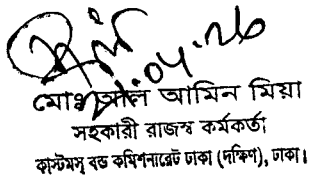 আল আমিন মিয়া
সহকারী রাজস্ব কর্মকর্তা
কাস্টমস্ বন্ড কমিশনারেট ঢাকা (দক্ষিণ), ঢাকা।